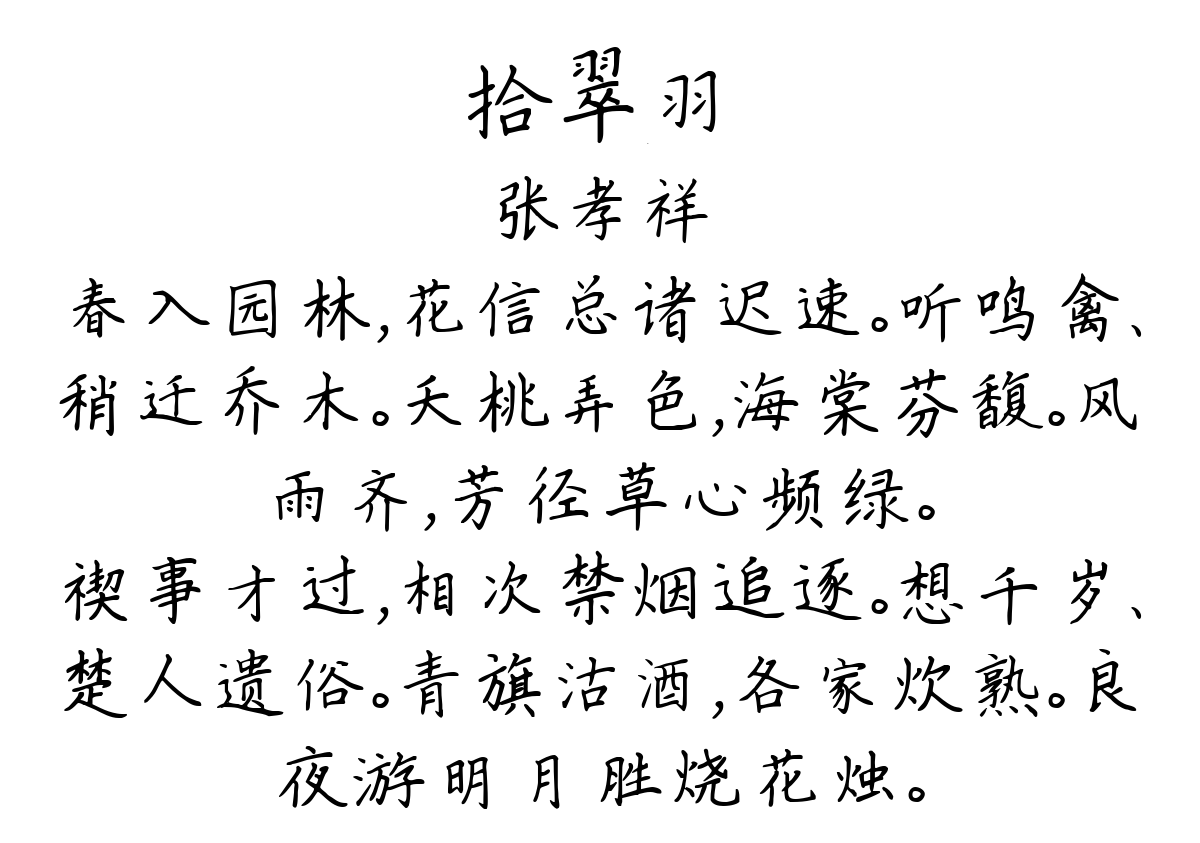 拾翠羽
张孝祥
春入园林,花信总诸迟速。听鸣禽、
稍迁乔木。夭桃弄色,海棠芬馥。风
雨齐,芳径草心频绿。
禊事才过,相次禁烟追逐。想千岁、
楚人遗俗。青旗沽酒,各家炊熟。良
夜游明月胜烧花烛。